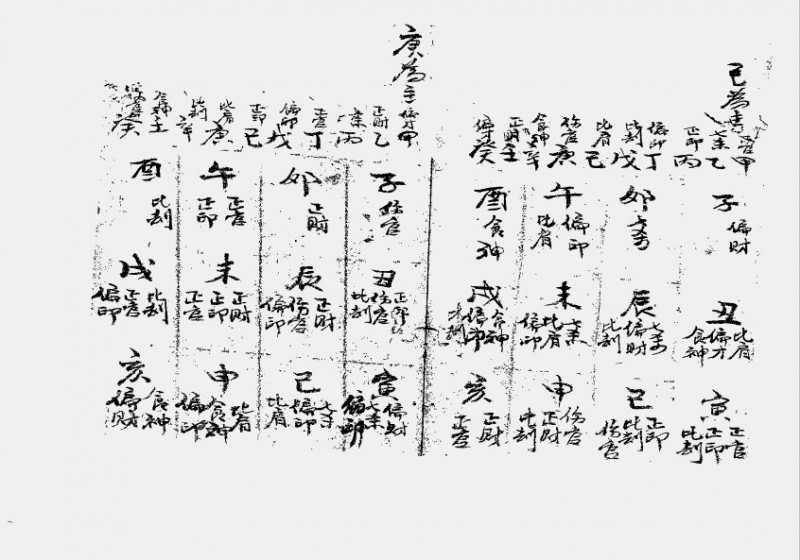 己為主
正官甲
七杀乙
正印丙
偏印丁
比刦戊
比肩己
伤官庚
食神辛
正財壬
偏财癸
子
偏财
丑
比肩
偏才
食神
寅
正官
正印
比刦
卯
七杀
辰
七杀
偏財
比刦
己
正印
比刦
伤官
午
偏印
比肩
未
七杀
比肩
偏印
申
伤官
正財
比刦
酉
食神
戌
食神
偏印
亥
正財
正官
庚為主
偏才甲
正財乙
七杀丙
正官丁
偏印戊
正印己
比肩庚
比刦辛
食神壬
癸
子
伤官
丑
正印
伤官
比刦
寅
偏财
七杀
偏印
卯
正財
辰
正財
伤官
偏印
己
七杀
偏印
比肩
午
正官
正印
未
正財
正印
正官
申
比肩
食神
偏印
酉
比刦
戌
比刦
正官
偏印
亥
食神
偏財